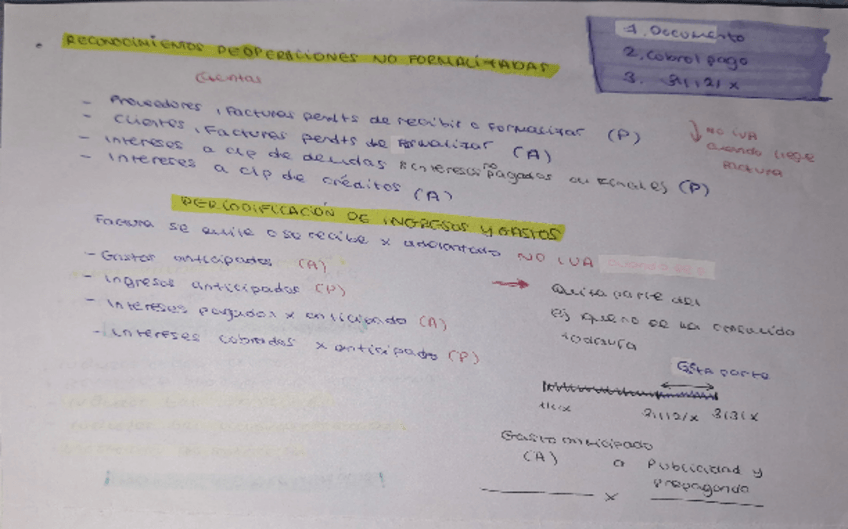 RECONOCIMIENTOS DE OPERACIONES NO FORMALIZADAS
Cuentas
1. Documento
2. Cobro/pago
3. 31/12/x
- Proveedores, facturas pendts de recibir o formalizar (P)
- Clientes, facturas pendts de formalizar (A)
- Intereses a c/p de deudas #intereses no pagados (P)
- Intereses a c/p de créditos (A)
NO IVA
cuando llegue
factura
PERIODIFICACIÓN DE INGRESOS Y GASTOS
Factura se emite o se recibe x adelantado NO IVA
- Gastos anticipados (A)
- Ingresos anticipados (P)
- Intereses pagados x anticipado (A)
- Intereses cobrados x anticipado (P)
→ Quita parte del
ej que no se ha consumido
todavía
Esta parte
1/1/x 31/12/x 31/3/x
Gasto anticipado
(A) a Publicidad y
propaganda
x